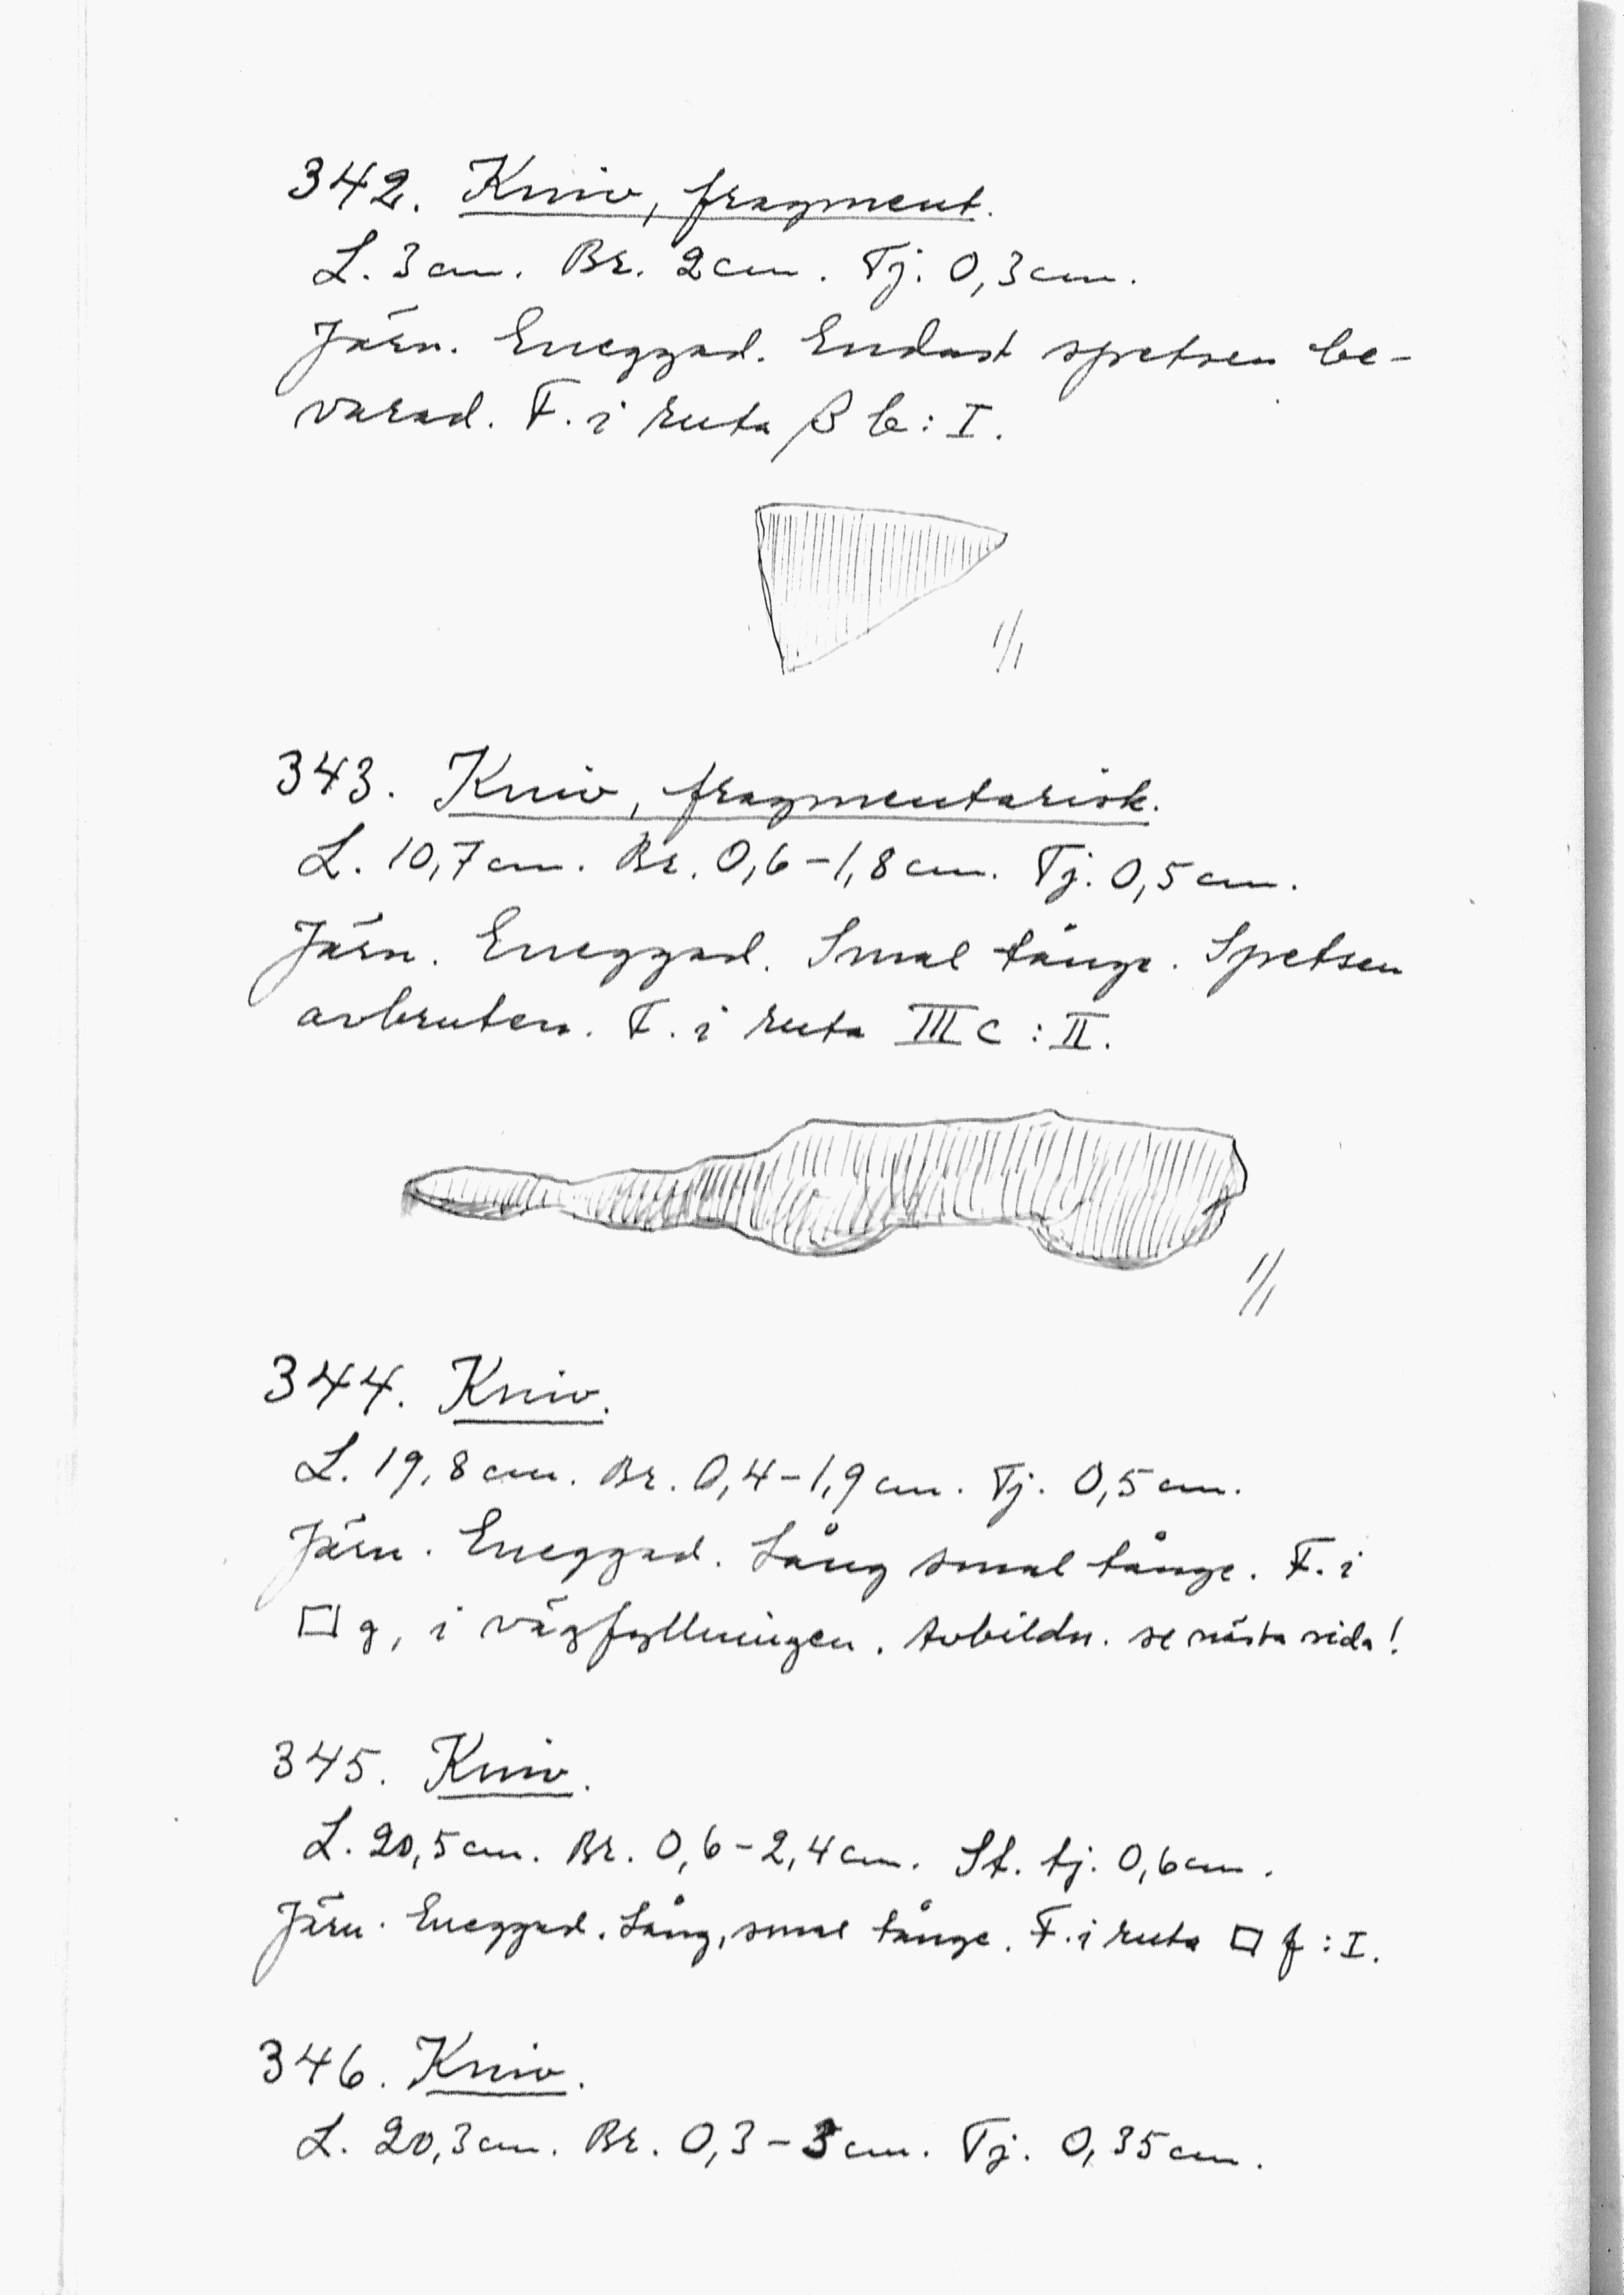 342. Kniv, fragment.
L. 3 cm. Br. 2 cm. Tj. 0,3 cm.
Järn. Eneggad. Endast spetsen be-
varad. F. i ruta β b : I.
1/1
343. Kniv, fragmentarisk.
L. 10,7 cm. Br. 0,6-1,8 cm. Tj. 0,5 cm.
Järn. Eneggad. Smal tånge. Spetsen
avbruten. F. i ruta III c : II.
1/1
344. Kniv.
L. 19,8 cm. Br. 0,4-1,9 cm. Tj. 0,5 cm.
Järn. Eneggad. Lång smal tånge. F. i
□ g, i vägfyllningen. Avbildn. se nästa sida!
345. Kniv.
L. 20,5 cm. Br. 0,6-2,4 cm. St. tj. 0,6 cm.
Järn. Eneggad. Lång, smal tånge. F. i ruta □ f : I.
346. Kniv.
L. 20,3 cm. Br. 0,3-3 cm. Tj. 0,35 cm.